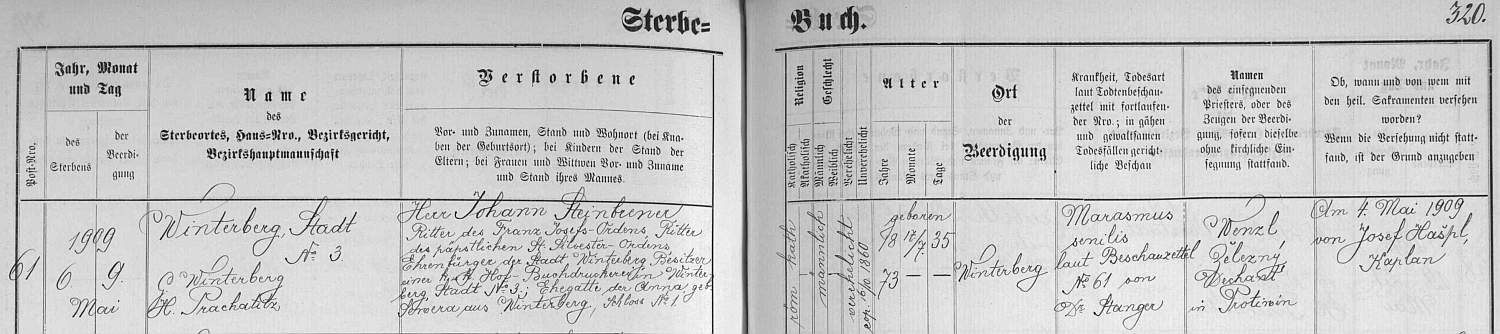 Sterbe=
Buch.
320.
Post-Nro.
Jahr, Monat
und Tag
des
Sterbens
der
Beerdi-
gung
Name
des
Sterbeortes, Haus=Nro., Bezirksgericht,
Bezirkshauptmannschaft
Verstorbene
Vor- und Zunamen, Stand und Wohnort (bei Kna-
ben der Geburtsort); bei Kindern der Stand der
Eltern; bei Frauen und Wittwen Vor- und Zuname
und Stand ihres Mannes.
Religion
Katholisch
Akatholisch
Geschlecht
Männlich
Weiblich
Verehelicht
Unverehelicht
Alter
Jahre
Monate
Tage
Ort
der
Beerdigung
Krankheit, Todesart
laut Todtenbeschau-
zettel mit fortlaufen-
der Nro.; in gähen
und gewaltsamen
Todesfällen gericht-
liche Beschau
Namen
des einsegnenden
Priesters, oder des
Zeugen der Beerdi-
gung, sofern dieselbe
ohne kirchliche Ein-
segnung stattfand.
Ob, wann und von wem mit
den heil. Sakramenten versehen
worden?
Wenn die Versehung nicht statt-
fand, ist der Grund anzugeben
61
1909
6. 9.
Mai
Winterberg, Stadt
No 3
G. Winterberg
H. Prachatitz
Herr Johann Steinbrener
Ritter des Franz Josefs-Ordens, Ritter
des päpstlichen St. Silvester-Ordens
Ehrenbürger der Stadt Winterberg Besitzer
einer k. k. Hof-Buchdruckerei in Winter-
berg, Stadt No 3; Ehegatte der Anna geb.
aus Winterberg, Schloss No 1
röm kath
männlich
verehelicht
cop. 16/10 1860
geboren
18 17/7. 35
73 — —
Winterberg
Marasmus
senilis
laut Beschauzettel
No 61 von
Dr Stanger
Wenzl
Železný
Dechant
in Protiwin
Am 4. Mai 1909
von Josef Hašpl,
Kaplan